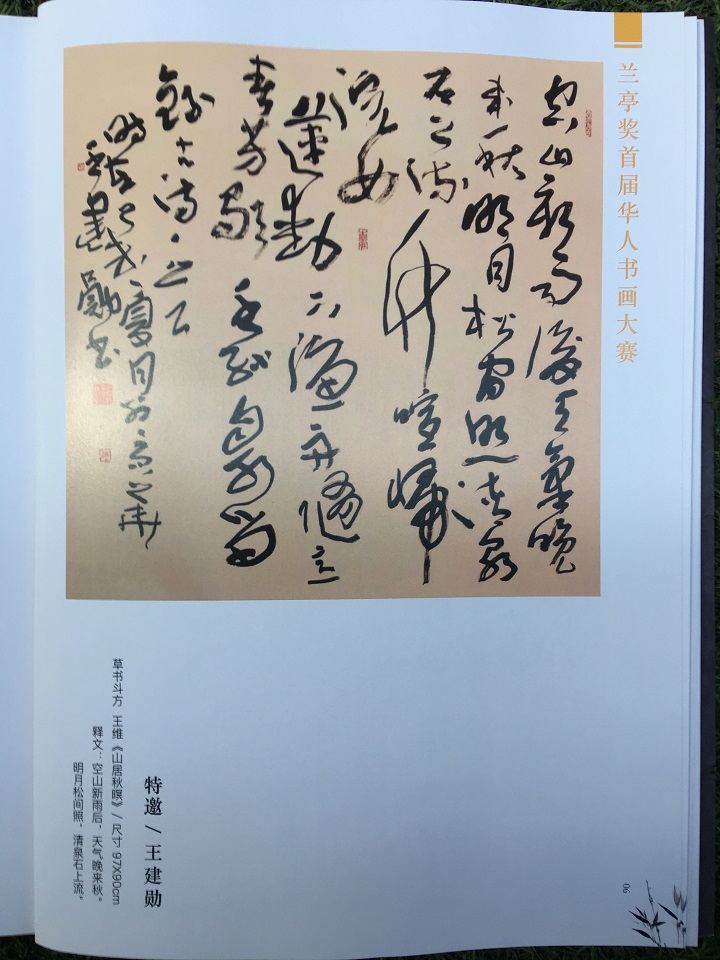 兰亭奖首届华人书画大赛
空山新雨後天氣晚
来秋明月松间照清泉
石上流竹喧歸
浣女
蓮動下渔舟随意
春芳歇王孫自可留
時在
王建勛书
特邀 / 王建勋
草书斗方 王维《山居秋暝》/ 尺寸 97X90cm
释文：空山新雨后，天气晚来秋。
明月松间照，清泉石上流。
06